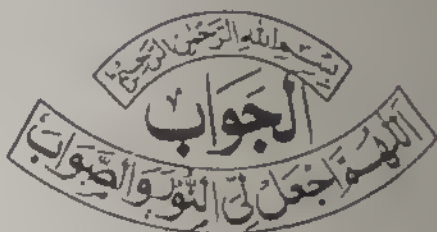 بِسْمِ اللهِ الرَّحْمٰنِ الرَّحِيْمِ
اَلجَوَاب
اَللّٰهُمَّ اجْعَلْ لِّىْ النُّوْرَ وَالصَّوَابَ